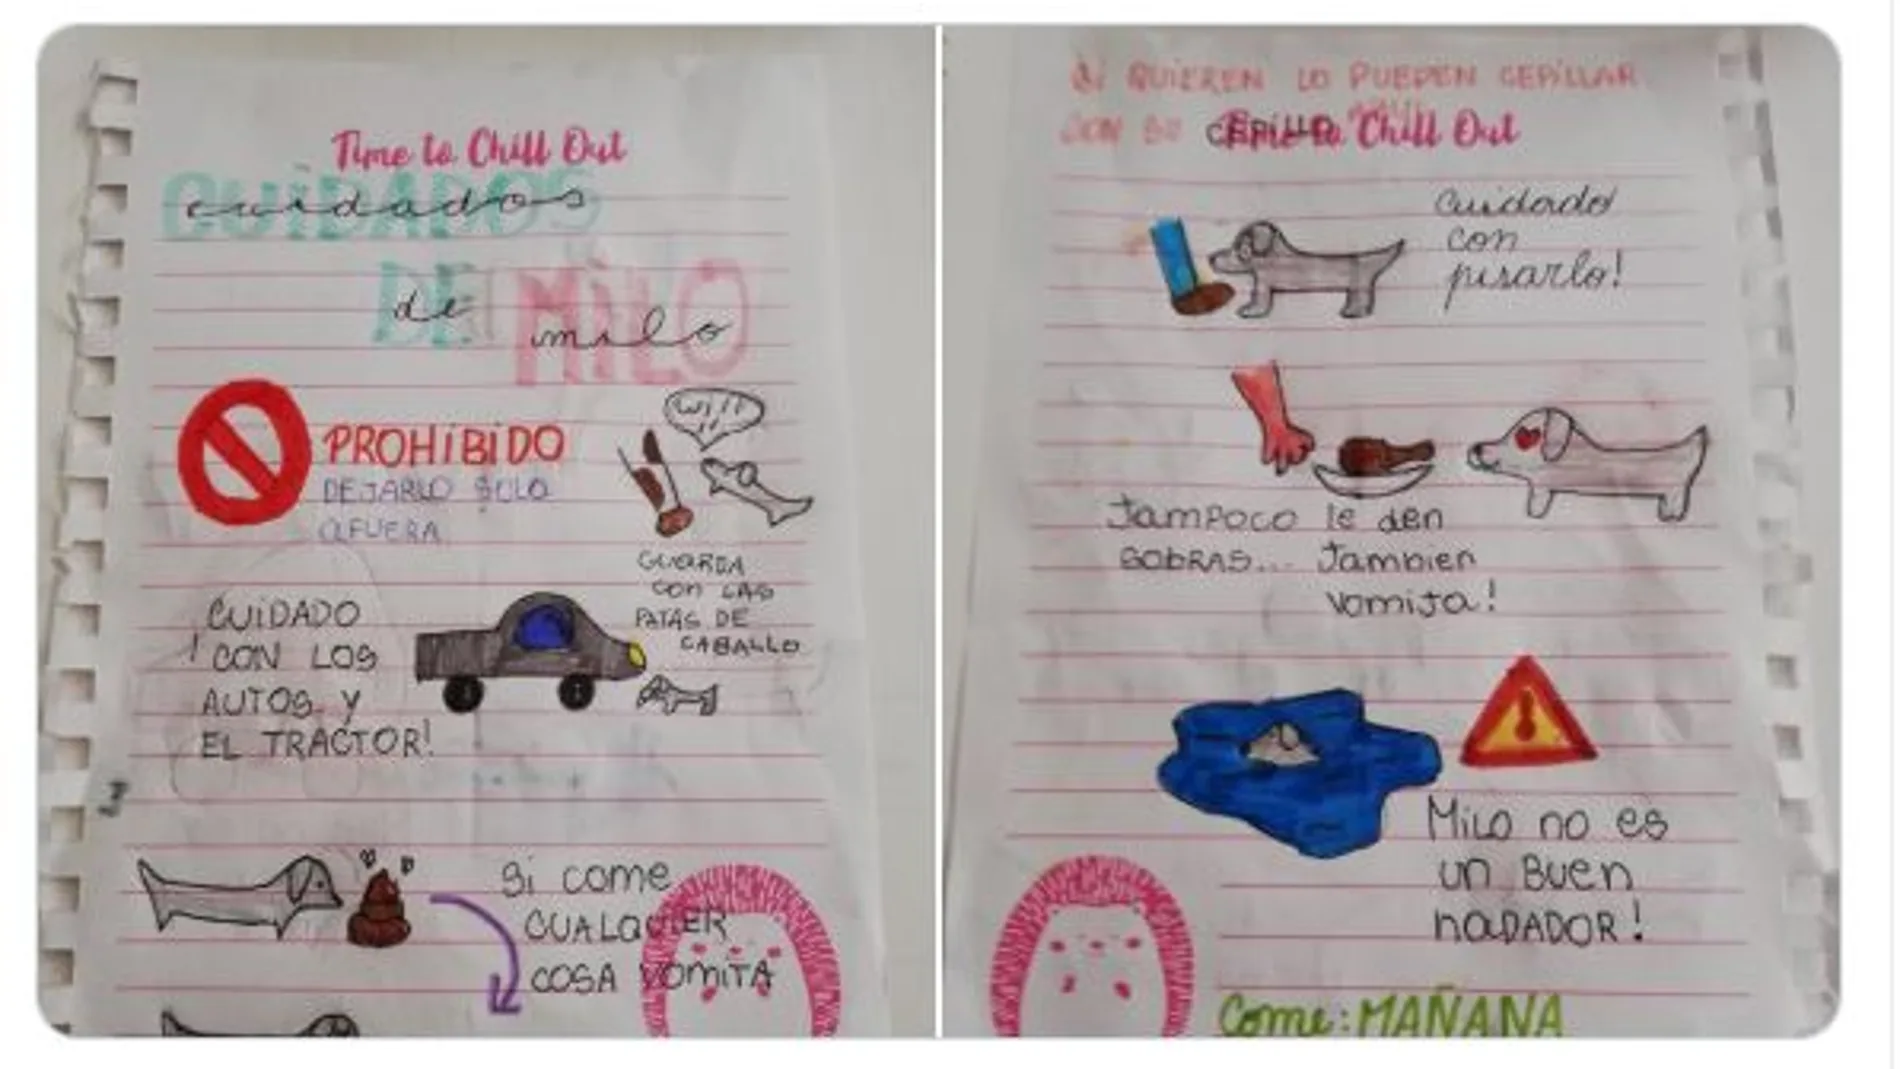 Time to Chill Out
CUIDADOS
cuidados
DE MILO
de milo
PROHIBIDO
DEJARLO SOLO
AFUERA
WI!!
GUARDA
CON LAS
PATAS DE
CABALLO
¡CUIDADO
CON LOS
AUTOS Y
EL TRACTOR!
Si come
CUALQUIER
COSA VOMITA
Si QUIEREN LO PUEDEN CEPILLAR
CON SU CEPILLO
Time to Chill Out
Cuidado
con
pisarlo!
Tampoco le den
SOBRAS... Tambien
vomita!
Milo no es
un Buen
naDADOR!
Come: MAÑANA